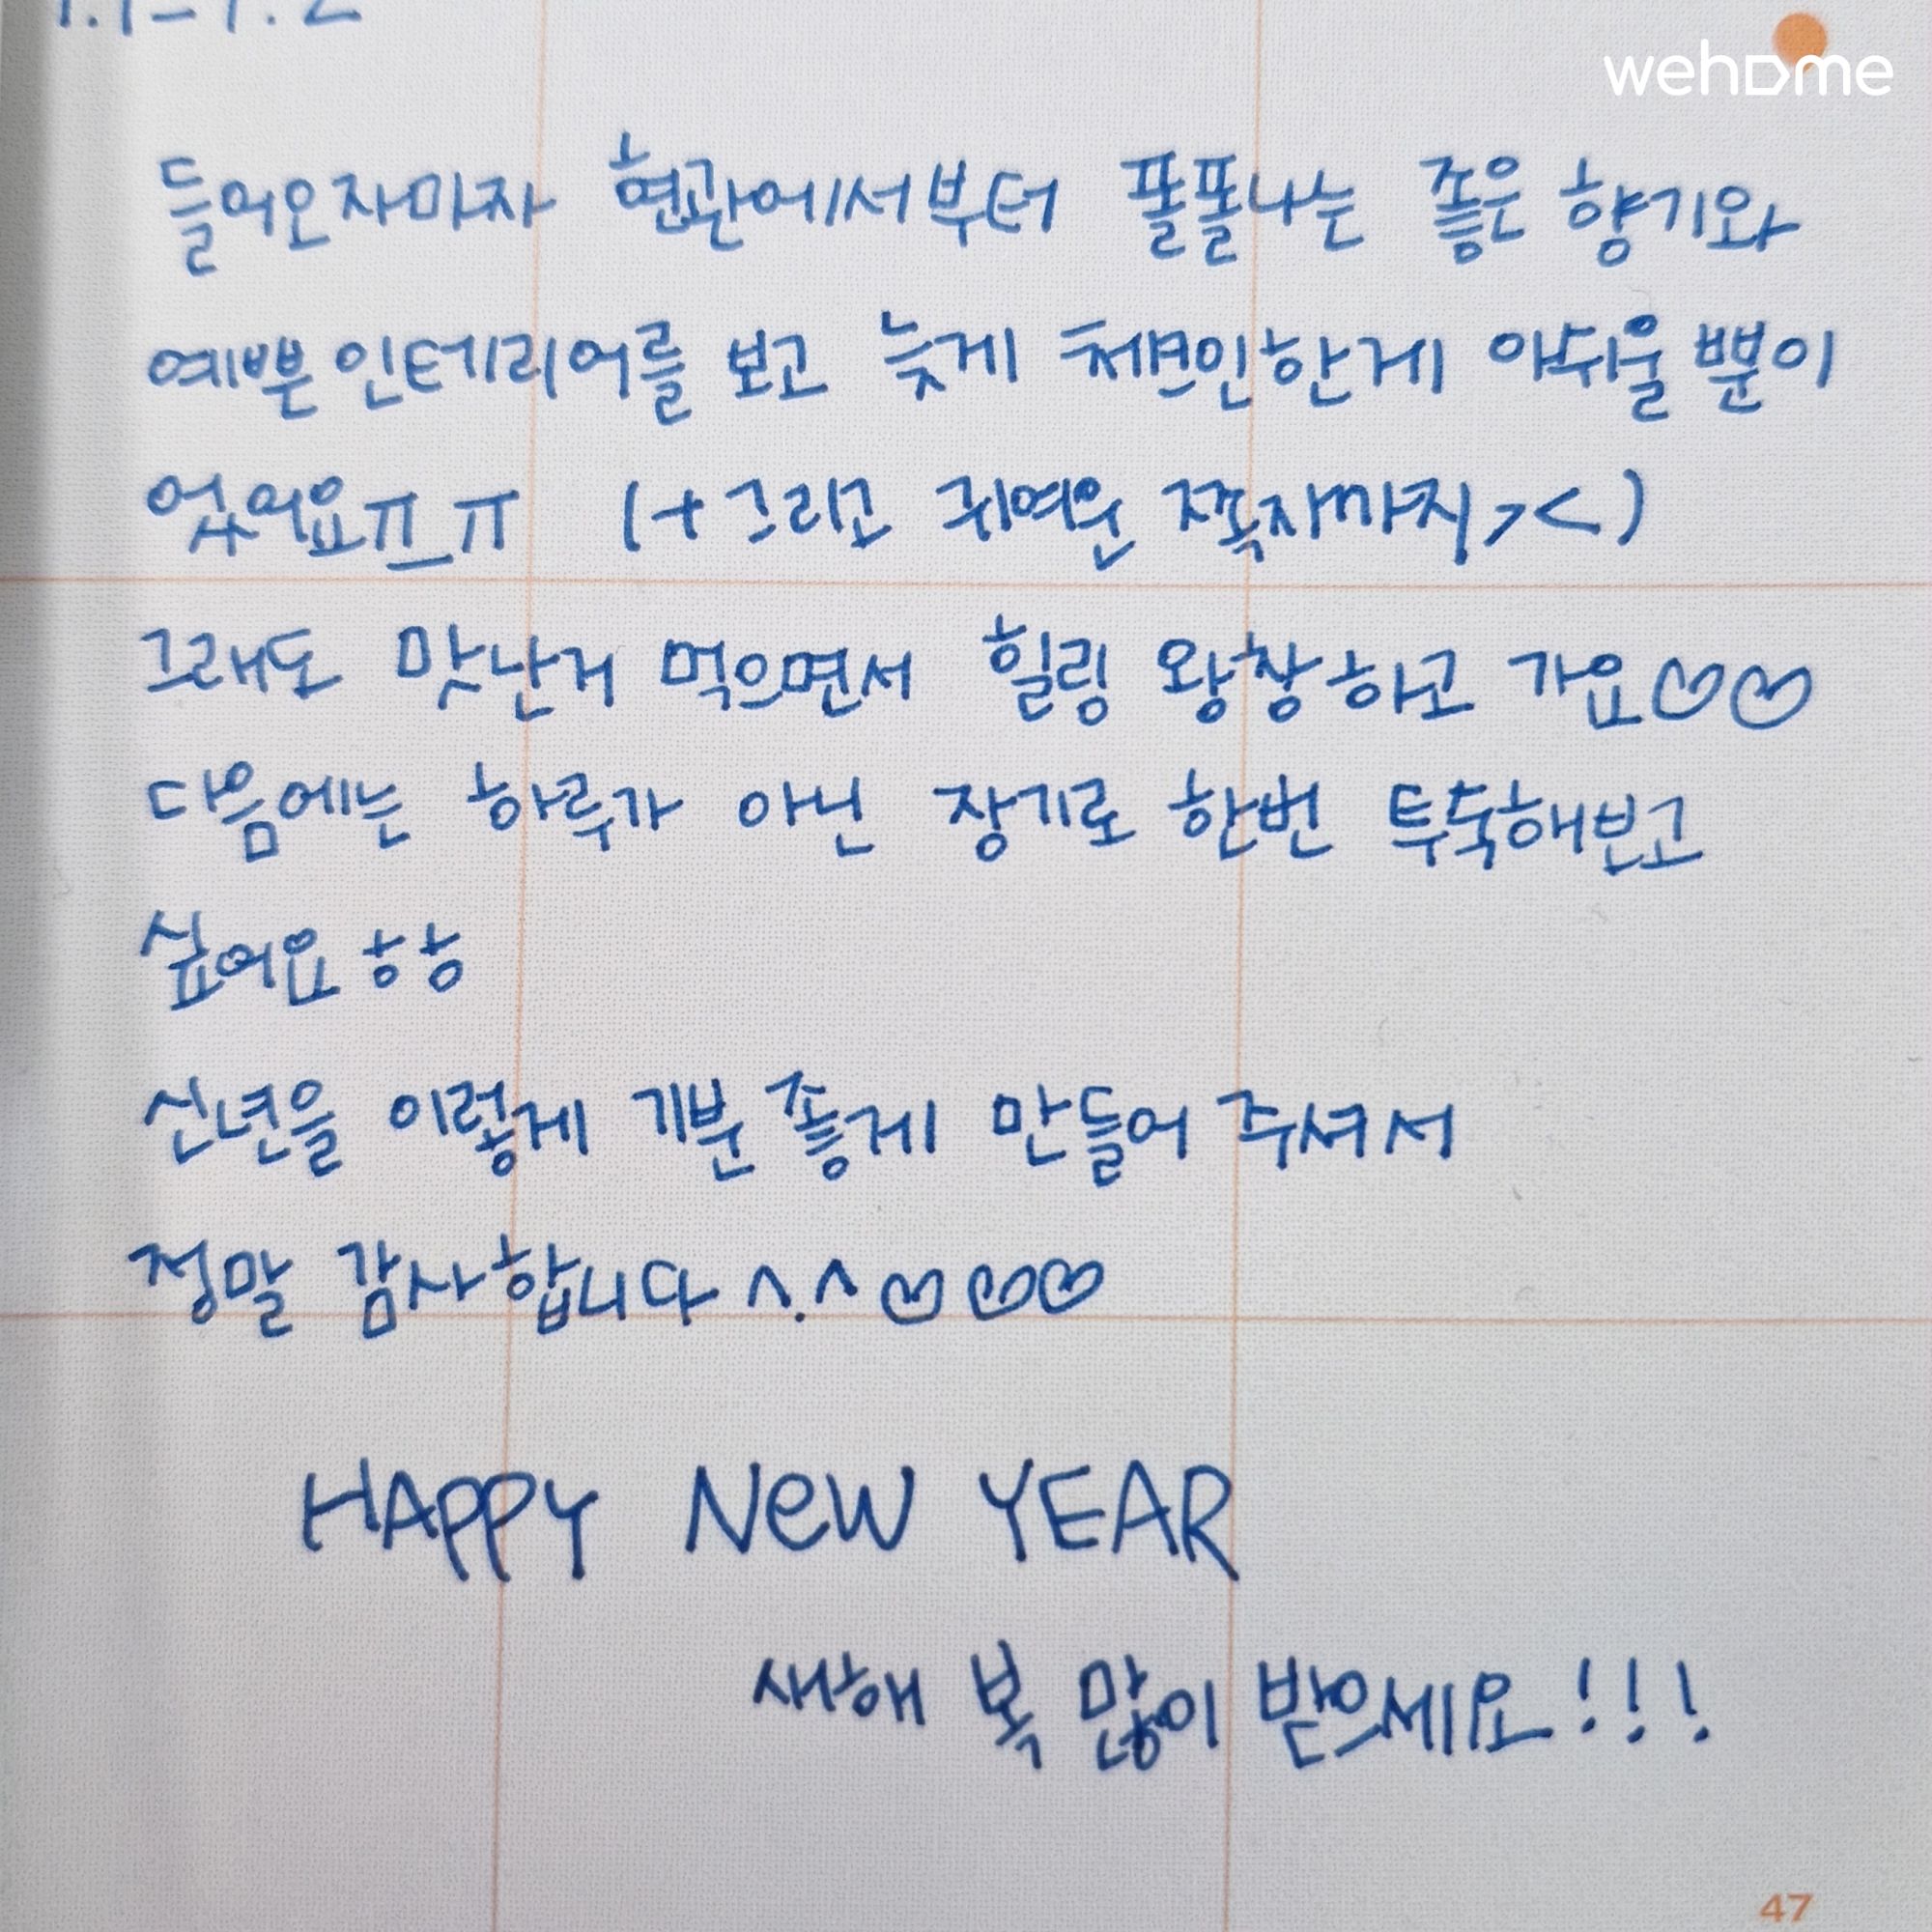 1.1-1.2
wehome
들어오자마자 현관에서부터 폴폴나는 좋은 향기와
예쁜 인테리어를 보고 늦게 체크인한게 아쉬울 뿐이
었어요ㅠ_ㅠ (+그리고 귀여운 쪽지까지><)
그래도 맛난거 먹으면서 힐링 왕창하고 가요♡♡
다음에는 하루가 아닌 장기로 한번 투숙해보고
싶어요 ㅎㅎ
신년을 이렇게 기분 좋게 만들어 주셔서
정말 감사합니다 ^.^♡♡♡
HAPPY NeW YEAR
새해 복 많이 받으세요!!!
47